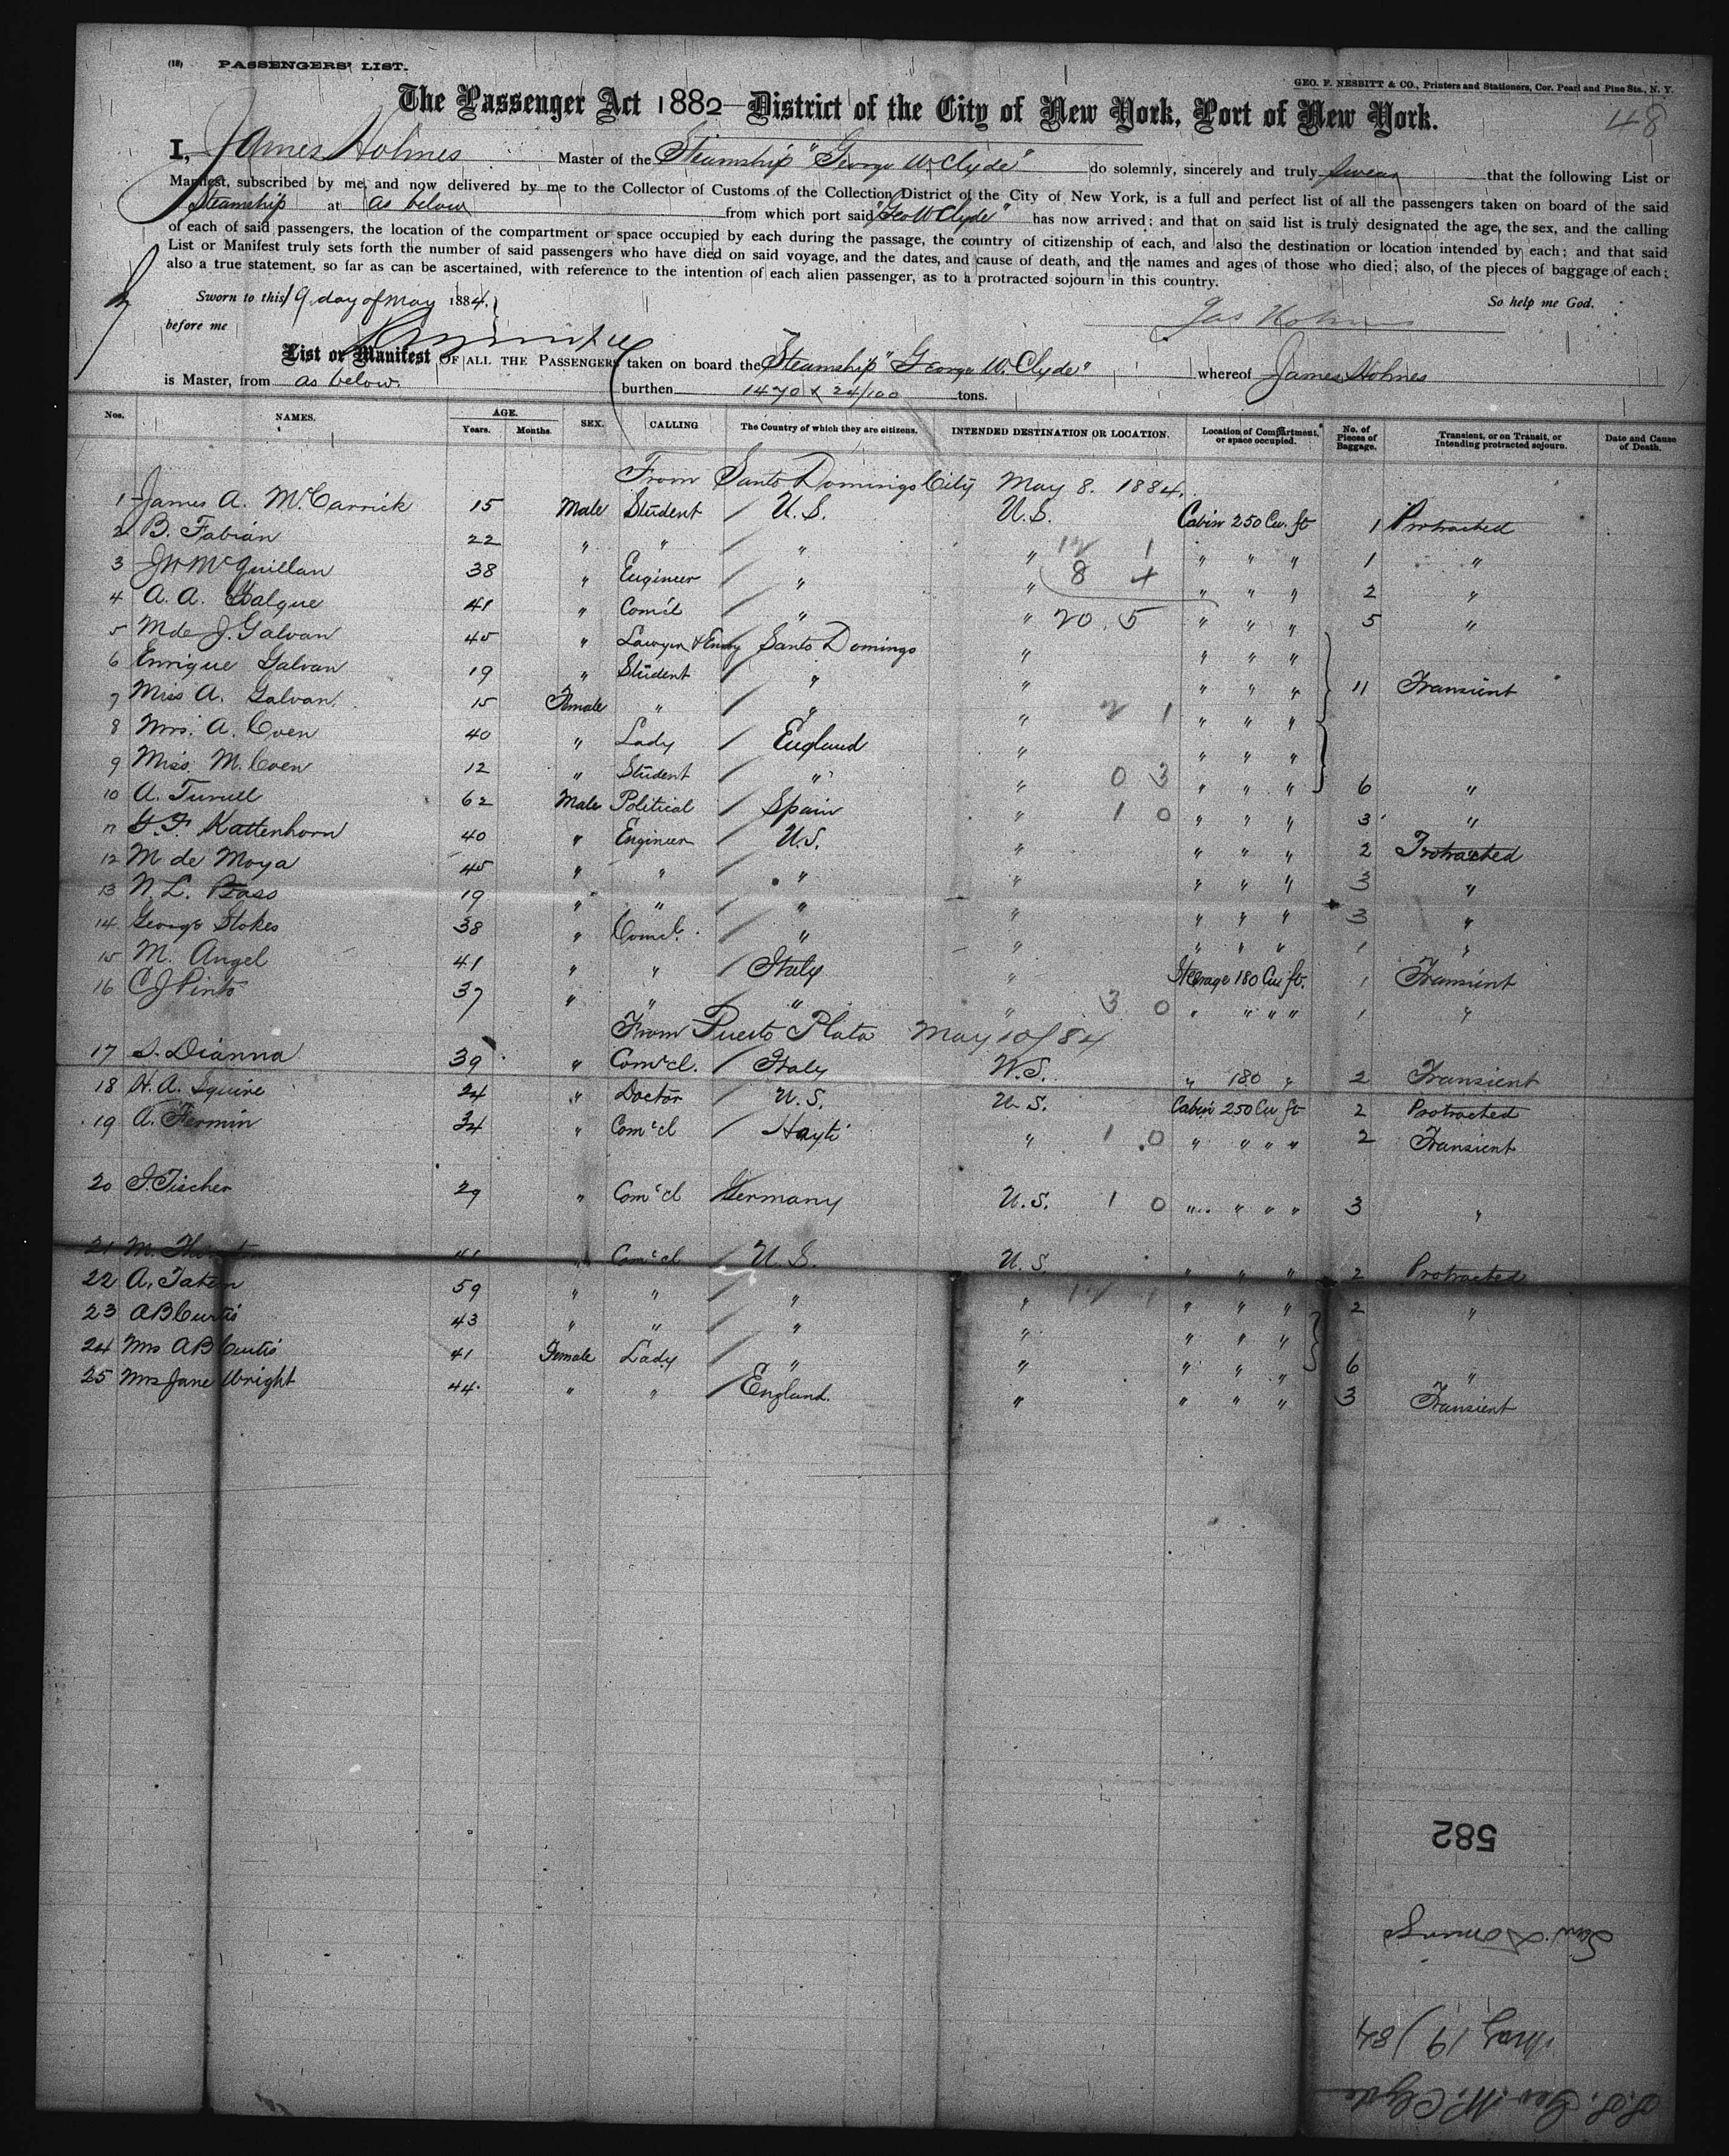 (18) PASSENGERS' LIST.
GEO. F. NESBITT & CO., Printers and Stationers, Cor. Pearl and Pine Sts., N. Y.
The Passenger Act 1882 District of the City of New York, Port of New York.
48
I, James Holmes Master of the Steamship "George W. Clyde" do solemnly, sincerely and truly swear that the following List or
Manifest, subscribed by me, and now delivered by me to the Collector of Customs of the Collection District of the City of New York, is a full and perfect list of all the passengers taken on board of the said
Steamship at as below from which port said "Geo W Clyde" has now arrived; and that on said list is truly designated the age, the sex, and the calling
of each of said passengers, the location of the compartment or space occupied by each during the passage, the country of citizenship of each, and also the destination or location intended by each; and that said
List or Manifest truly sets forth the number of said passengers who have died on said voyage, and the dates, and cause of death, and the names and ages of those who died; also, of the pieces of baggage of each;
also a true statement, so far as can be ascertained, with reference to the intention of each alien passenger, as to a protracted sojourn in this country.
Sworn to this 19 day of May 1884. So help me God.
before me Jas Holmes
List or Manifest OF ALL THE PASSENGERS taken on board the Steamship "George W. Clyde" whereof James Holmes
is Master, from as below. burthen 1470 & 24/100 tons.
Nos. NAMES. AGE. Years. Months. SEX. CALLING The Country of which they are citizens. INTENDED DESTINATION OR LOCATION. Location of Compartment, or space occupied. No. of Pieces of Baggage. Transient, or on Transit, or Intending protracted sojourn. Date and Cause of Death.
From Santo Domingo City May 8. 1884.
1 James A. McCarrick 15 Male Student / U.S. U.S. Cabin 250 Cu. ft 1 Protracted
2 B. Fabian 22 " " / " " 1 " " " 1 "
3 J W McQuillan 38 " Engineer / " " 8 " " " 2 "
4 A. A. 41 " Com'cl / " " 20. 5 " " " 5 "
5 Mde J. Galvan 45 " Lawyer Santo Domingo " " " "
6 Enrique Galvan 19 " Student / " " " " " 11 Transient
7 Miss A. Galvan 15 Female " / " " 1 " " "
8 Mrs. A. Coen 40 " Lady / England " " " "
9 Miss M. Coen 12 " Student / " " 0 3 " " " 6 "
10 A. 62 Male Political / Spain " 1 0 " " " 3 "
11 F. Kattenhorn 40 " Engineer / U.S. " " " " 2 Protracted
12 M de Moya 45 " " / " " " " " 3 "
13 N. L. 19 " " / " " " " " 3 "
14 George Stokes 38 " Comcl. / " " " " " 1 "
15 M. Angel 41 " " / Italy " Steerage 180 Cu ft. 1 Transient
16 C J Pinto 37 " " / " " 3 0 " " " " 1 "
From Puerto Plata May 10/84
17 S. Dianna 39 " Com'cl. / Italy U.S. " 180 " 2 Transient
18 H. A. Squire 24 " Doctor / U.S. U.S. Cabin 250 Cu ft 2 Protracted
19 A. Fermin 34 " Com'cl / Hayti " 1 0 " " " " 2 Transient
20 J. Fischer 29 " Com'cl Germany U.S. 1 0 " " " " 3 "
21 M. 41 " Com'cl / U.S. U.S. " " " 2 Protracted
22 A. Tatem 59 " " / " " 1 " " " 2 "
23 A B Curtis 43 " " / " " " " "
24 Mrs A B Curtis 41 Female Lady / " " " " " 6 "
25 Mrs Jane Wright 44 " " / England " " " " 3 Transient
582
San Domingo
May 19/84
S.S. Geo W. Clyde